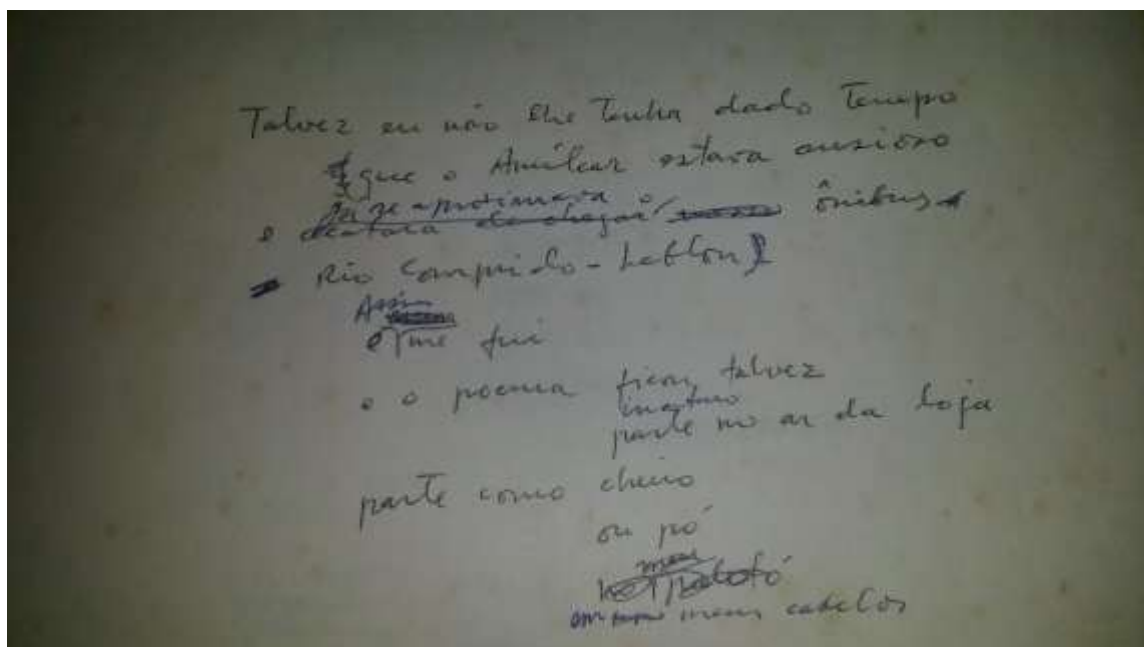 Talvez eu não lhe tenha dado tempo
que o Amílcar estava ansioso
já se aproximava o
e acabara de chegar ônibus
Rio Comprido - Leblon
Assim
e me fui
e o poema ficou, talvez
inexato
parte no ar da loja
parte como cheiro
ou pó
meu
no paletó
em meus cabelos